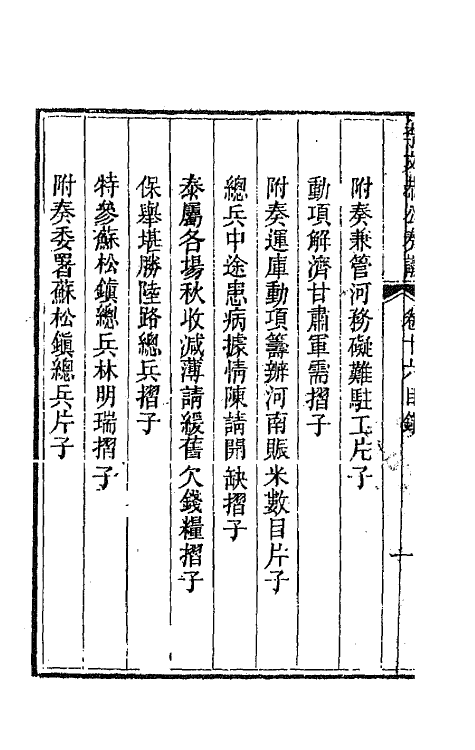 公奏議 卷十六目錄 一
附奏兼管河務礙難駐工片子
動項解濟甘肅軍需摺子
附奏運庫動項籌辦河南賑米數目片子
總兵中途患病據情陳請開缺摺子
泰屬各場秋收減薄請緩舊欠錢糧摺子
保舉堪勝陸路總兵摺子
特參蘇松鎮總兵林明瑞摺子
附奏委署蘇松鎮總兵片子